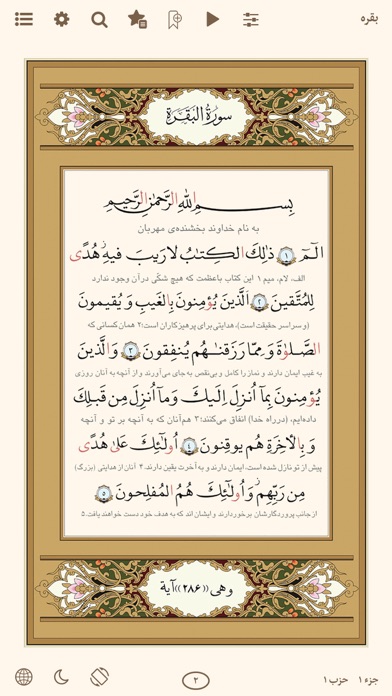 بقره
سورة البقرة
بسم الله الرحمن الرحیم
به نام خداوند بخشنده‌ی مهربان
الٓمٓ ۱ ذٰلِكَ الكِتٰبُ لارَيبَ فيهِ هُدًى
الف، لام، میم ۱ این کتاب باعظمت که هیچ شکّی درآن وجود ندارد
لِلمُتَّقينَ ۲ اَلَّذينَ يُؤمِنونَ بِالغَيبِ وَ يُقيمونَ
(و سراسر حقیقت است)، هدایتی برای پرهیزکاران است؛۲ همان کسانی که
الصَّلوٰةَ وَ مِمّا رَزَقنٰهُم يُنفِقونَ ۳ وَ الَّذينَ
به غیب ایمان دارند و نماز را کامل و بی‌نقص به‌جای می‌آورند و از آنچه به آنان روزی
يُؤمِنونَ بِمآ اُنزِلَ اِلَيكَ وَ مآ اُنزِلَ مِن قَبلِكَ
داده‌ایم، (درراه خدا) انفاق می‌کنند؛ ۳ هم‌آنان که به آنچه بر تو و آنچه
وَ بِالأخِرَةِ هُم يوقِنونَ ۴ اُولٰئِكَ عَلىٰ هُدًى
پیش از تو نازل شده است، ایمان دارند و به آخرت یقین دارند. ۴ آنان از هدایتی (بزرگ)
مِن رَبِّهِم وَ اُولٰئِكَ هُمُ المُفلِحونَ ۵
ازجانب پروردگارشان برخوردارند و ایشان‌اند که به هدف خود دست خواهند یافت. ۵
وهی ((۲۸۶)) آیة
جزء ۱ حزب ۱
۲